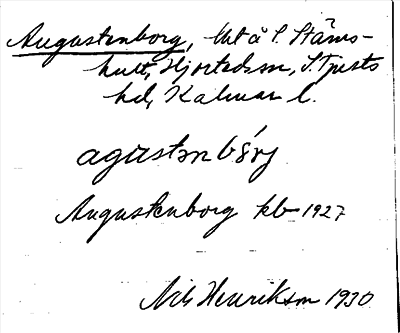 Augustenborg, lht å S. Stäms-
hult, Hjorteds sn, S. Tjusts
hd, Kalmar l.
agustənbörj
Augustenborg kb 1927
Nils Henrikson 1930